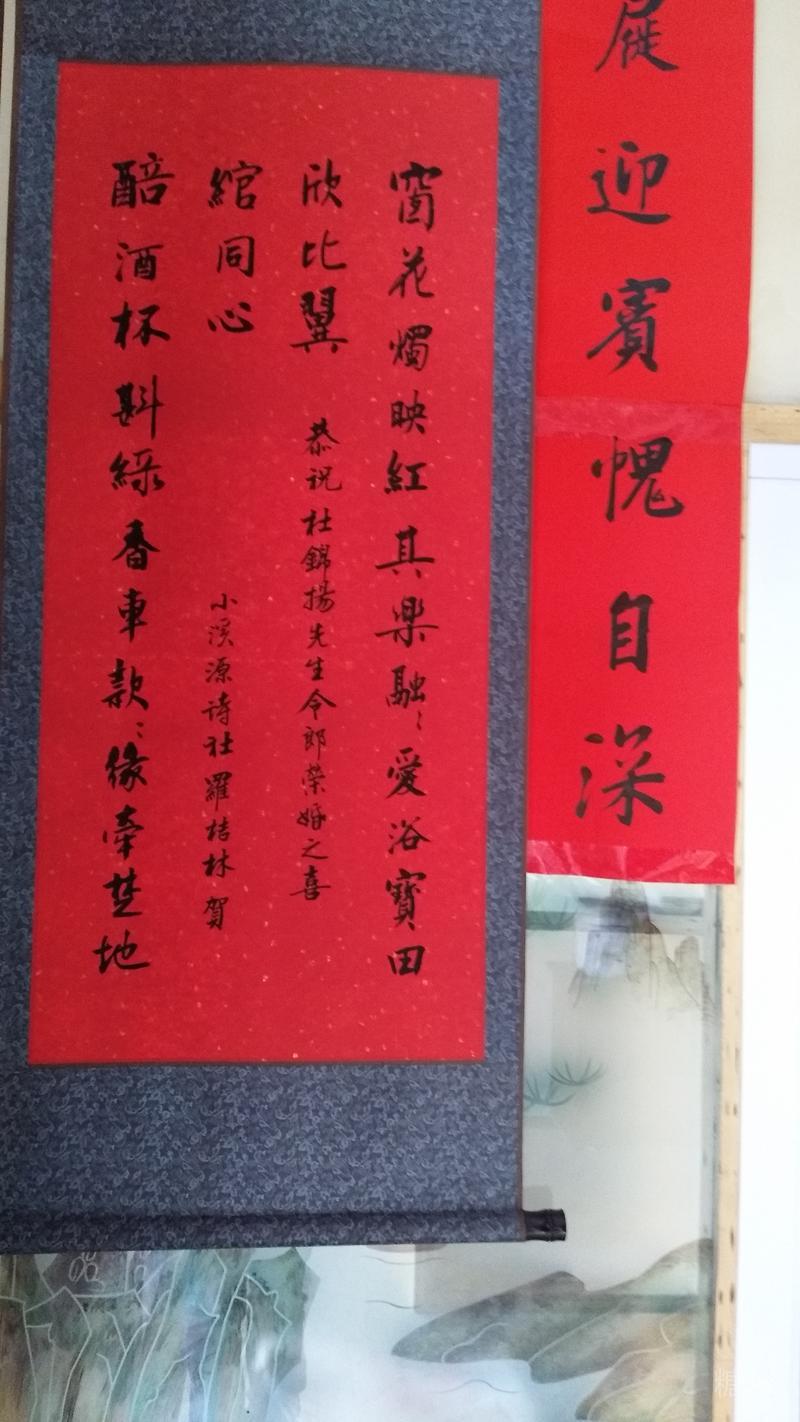 屣迎賓愧自深
窗花燭映紅其樂融〻愛浴寶田
欣比翼
恭祝杜錦揚先生令郎榮婚之喜
綰同心
小溪源詩社羅桔林賀
醅酒杯斟綠香車款〻緣牽楚地